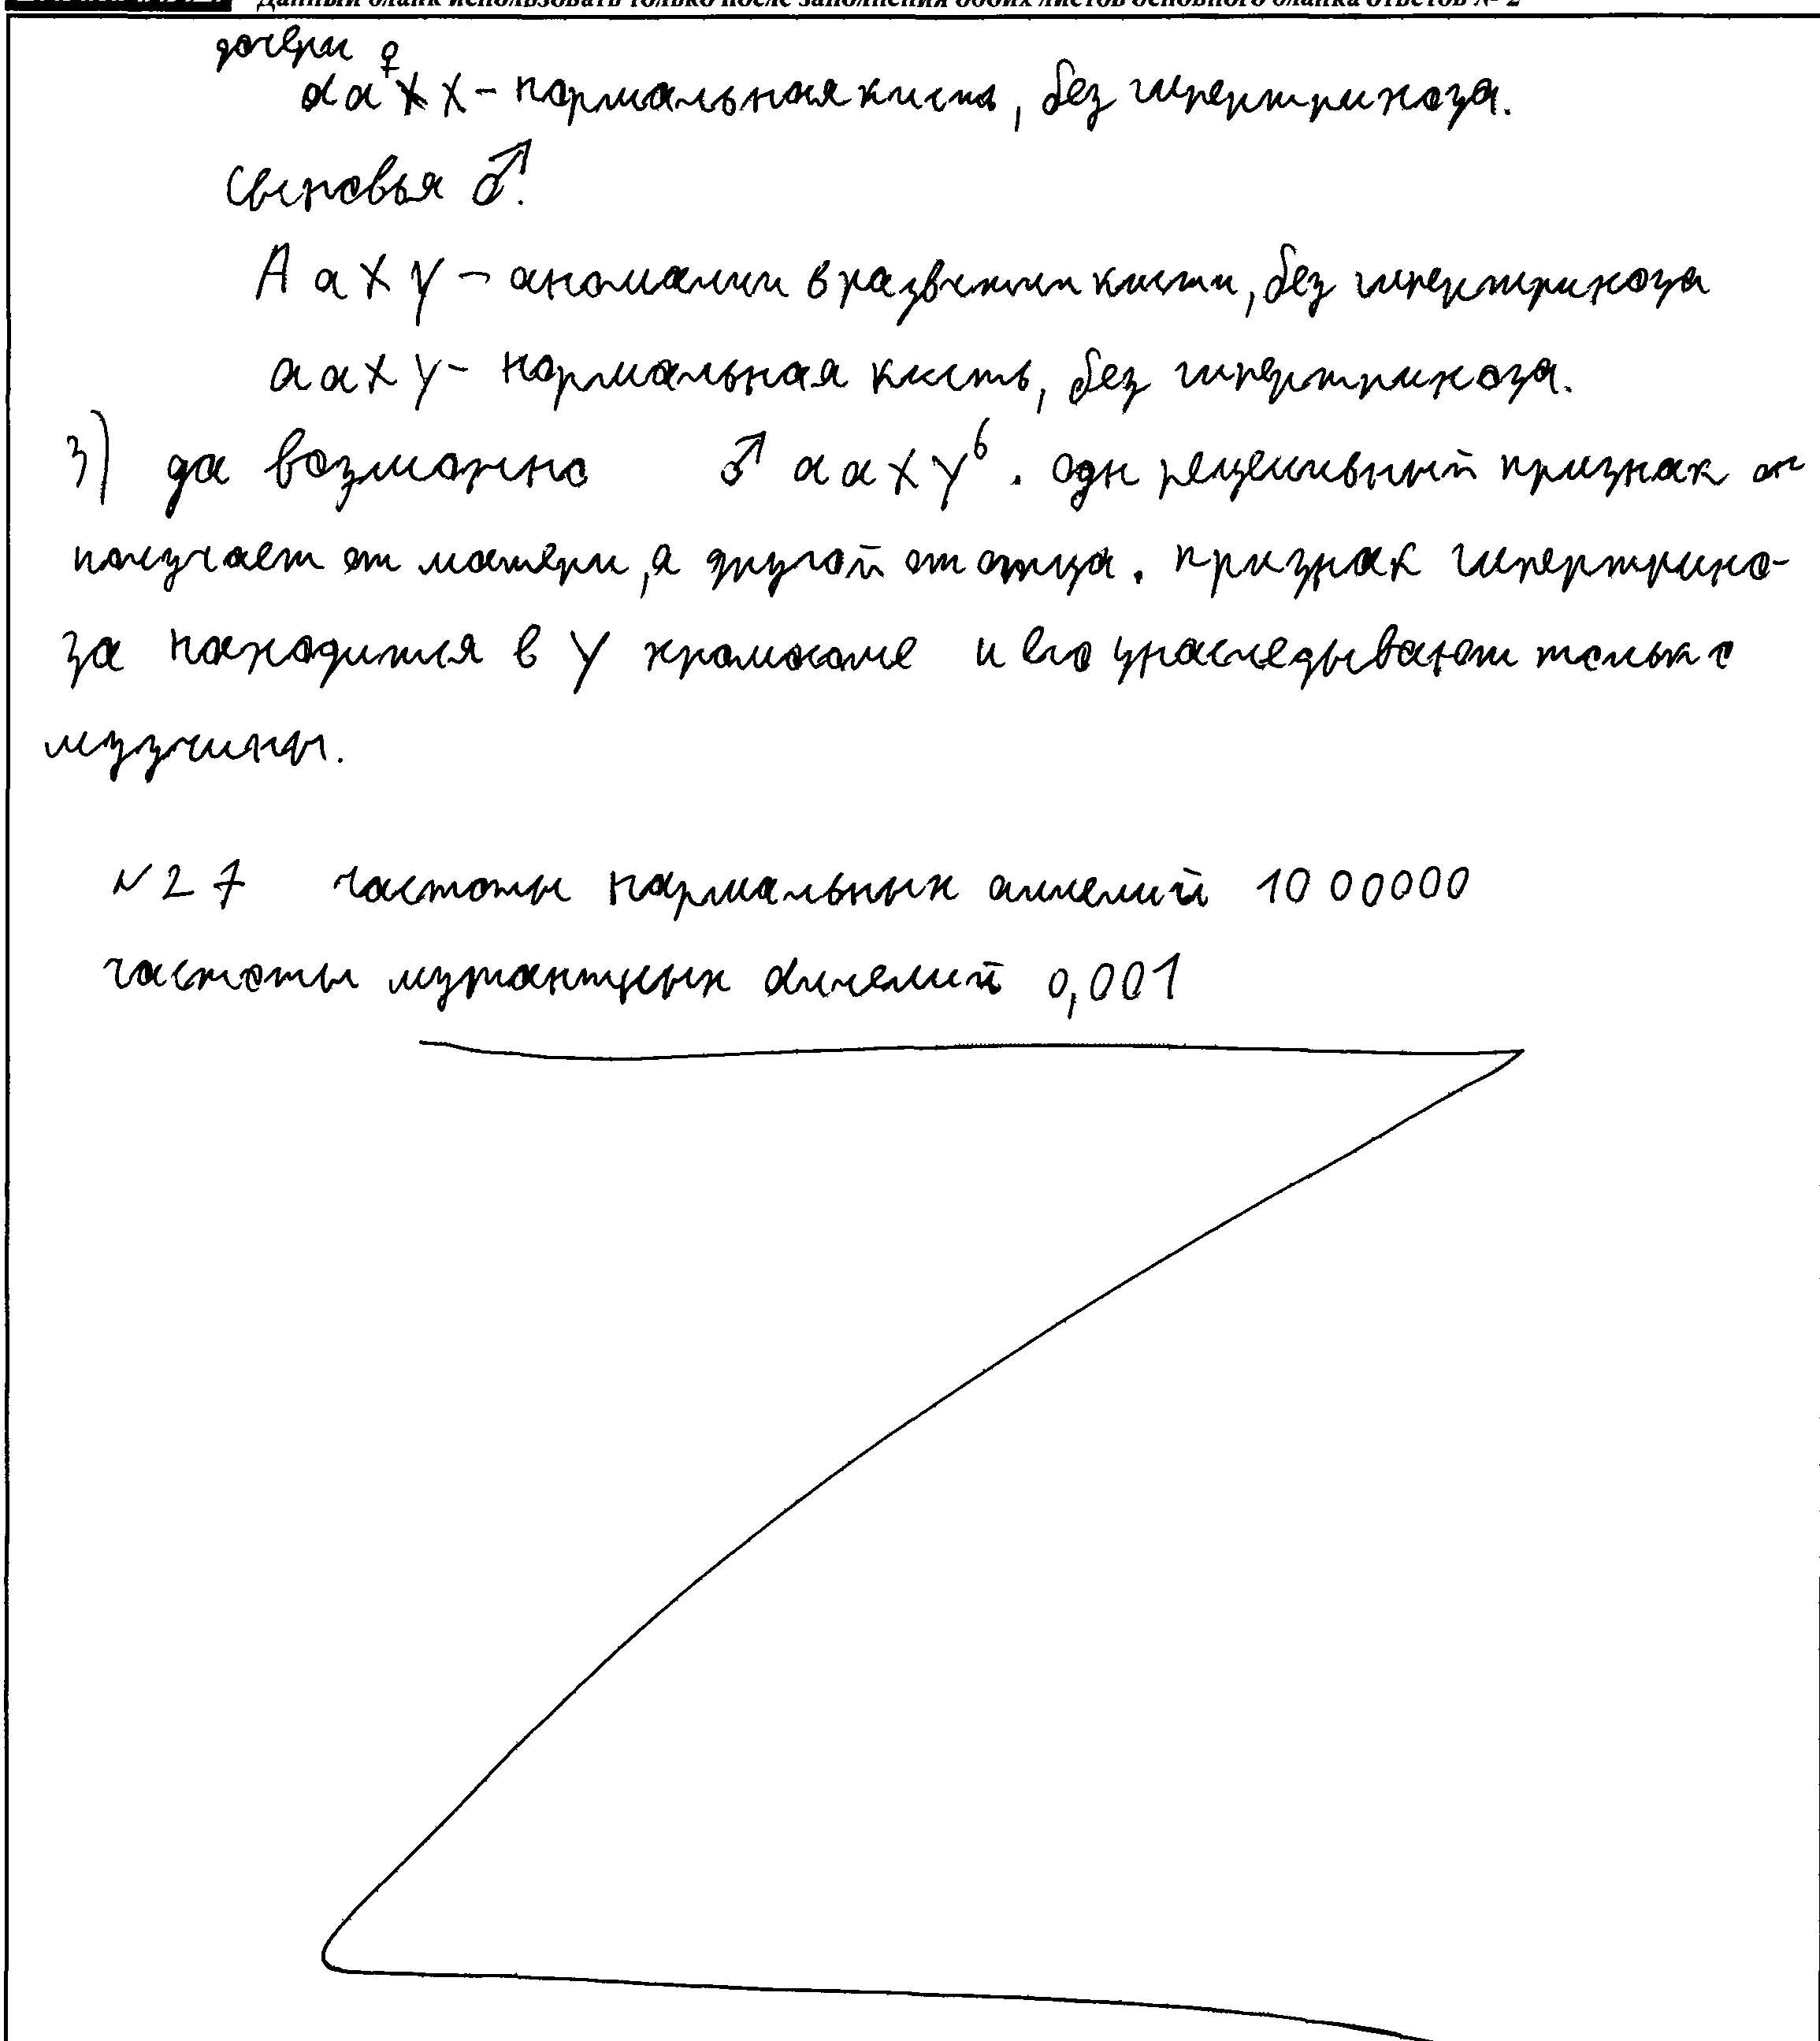 Данный бланк использовать только после заполнения обоих листов основного бланка ответов № 2
дочери ♀
aaXX - нормальная кисть, без гипертрихоза.
сыновья ♂.
AaXY - аномалии в развитии кисти, без гипертрихоза
aaXY - нормальная кисть, без гипертрихоза.
3) да возможно ♂ aaXY^b. одн рецесивный признак он
получает от матери, а другой от отца. признак гипертрихо-
за находится в Y хромосоме и его унаследывают только
мужчины.
№27 частоты нормальных аллелий 1000000
частоты мутантных аллелий 0,001